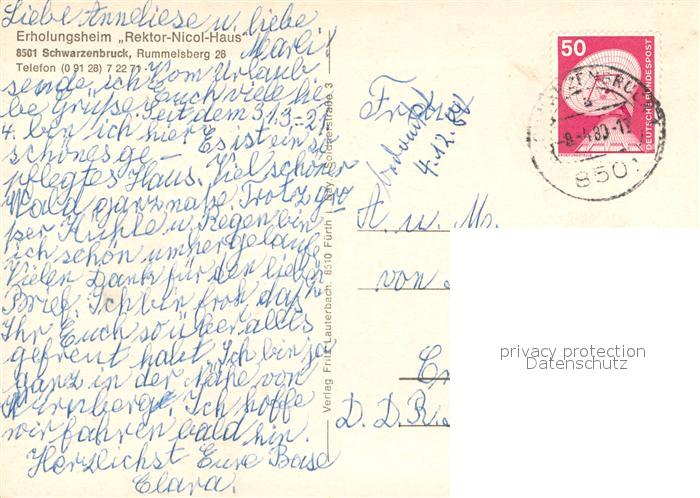 Liebe Anneliese u. liebe
Erholungsheim „Rektor-Nicol-Haus"
8501 Schwarzenbruck, Rummelsberg 28
Telefon (0 91 28) 7 22 71
Marli!
sende ich vom Urlaub
Euch viele lie-
be Grüße. Seit dem 31.3.-21.
4. bin ich hier. Es ist ein
schönes ge-
pflegtes Haus. Viel schöner
Wald ganz nahe. Trotz gro
ßer Kühle u. Regen bin
ich schön umhergelaufen
Vielen Dank für den lieben
Brief. Ich bin froh daß
Ihr Euch so über alles
gefreut habt. Ich bin ja
ganz in der Nähe von
Nürnberg. Ich hoffe
wir fahren bald hin.
Herzlichst Eure Base
Clara.
Verlag Fritz Lauterbach, 8510 Fürth i. Bay., Soldnerstraße 3
50
DEUTSCHE BUNDESPOST
8501
4.12.
A. u. M.
von
D.D.R.
privacy protection
Datenschutz